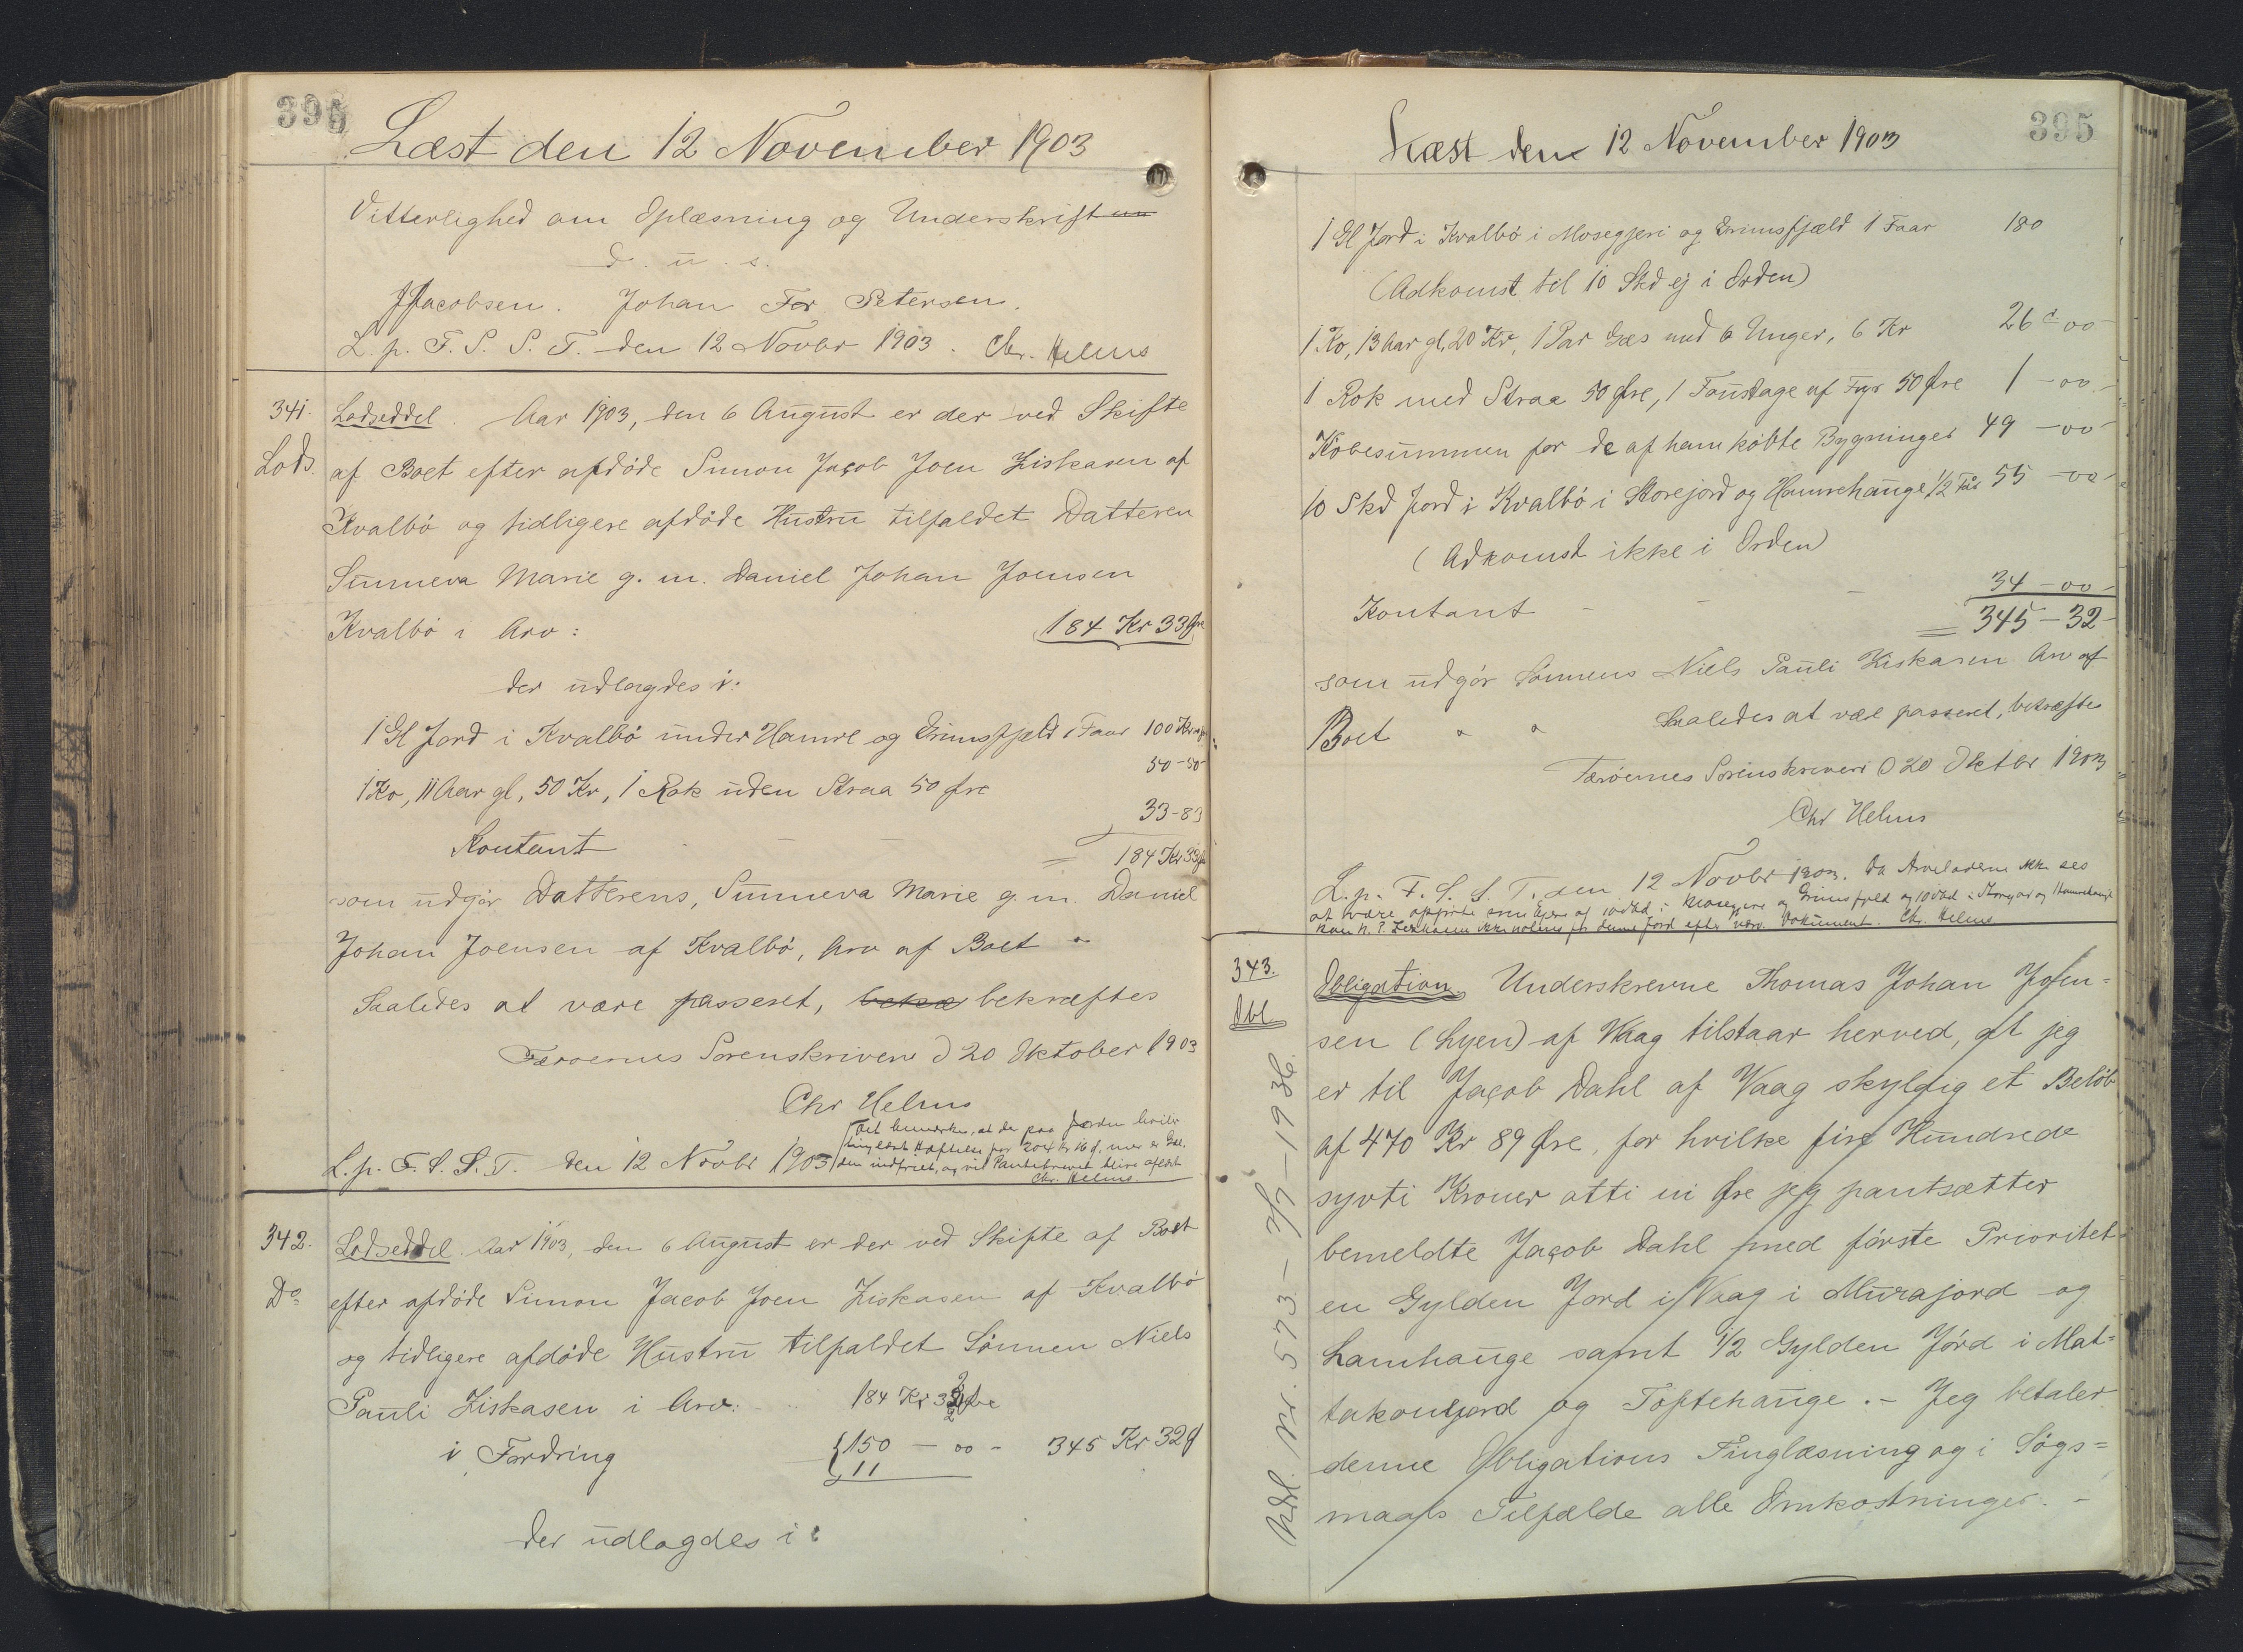 395
Læst den 12 November 1903
Vitterlighed om Oplæsning og Underskrift
d. u. s.
J Jacobsen. Johan Fr Petersen.
L. p. F. S. S. T. den 12 Novbr 1903. Chr. Helms
341. Lodseddel. Aar 1903, den 6 August er der ved Skifte
Lods. af Boet efter afdøde Simon Jacob Joen Ziskasen af
Kvalbø og tidligere afdøde Hustru tilfaldet Datteren
Sunneva Marie g. m. Daniel Johan Joensen
Kvalbø i Arv: 184 Kr 33 Øre
der udlagdes i:
1 Gl Jord i Kvalbø under Hamre og Grimsfjeld 1 Faar 100 Kr
1 Ko, 11 Aar gl, 50 Kr, 1 Rok uden Straa 50 Øre 50-50
Kontant - - 33-83
= 184 Kr 33 Øre
som udgør Datterens, Sunneva Marie g. m. Daniel
Johan Joensen af Kvalbø, Arv af Boet
Saaledes at være passeret, bekræftes
Færøernes Sorenskriveri d 20 Oktober 1903
Chr Helms
L. p. F. S. S. T. den 12 Novbr 1903
Det bemærkes, at der paa Jorden hviler
tinglæst Hæftelse for 204 Kr 16 Ø. men er Gæl-
den indfriet, og vil Pantebrevet blive aflæst
Chr. Helms.
342. Lodseddel. Aar 1903, den 6 August er der ved Skifte af Boet
Do efter afdøde Simon Jacob Joen Ziskasen af Kvalbø
og tidligere afdøde Hustru tilfaldet Sønnen Niels
Pauli Ziskasen i Arv: 184 Kr 32 Øre
i Fordring {150 - 00 - 345 Kr 32 Ø
{11
der udlagdes i:
395
Læst den 12 November 1903
1 Gl Jord i Kvalbø i Mosegjeri og Grimsfjæld 1 Faar 180
(Adkomst til 10 Skd ej i Orden)
1 Ko, 13 Aar gl, 20 Kr, 1 Par Gæs med 6 Unger, 6 Kr 26 - 00
1 Rok med Straa 50 Øre, 1 Foustage af Fyr 50 Øre 1 - 00 -
Købesummen for de af ham købte Bygninger 49 - 00 -
10 Skd Jord i Kvalbø i Storejord og Hamrehauge 1/2 Faar 55 - 00 -
(Adkomst ikke i Orden)
Kontant - - - 34 - 00 -
= 345 - 32 -
som udgør Sønnens Niels Pauli Ziskasen Arv af
Boet " " Saaledes at være passeret, bekræftes
Færøernes Sorenskriveri d 20 Oktbr 1903
Chr Helms
L. p. F. S. S. T. den 12 Novbr 1903. Da Arveladerne ikke ses
at være opførte som Ejere af 10 Skd i Mosegjere og Grimsfjeld og 10 Skd i Storejord og Hamrehauge
kan N. P. Ziskasen ikke noteres for denne Jord efter nærv. Dokument. Chr. Helms
343. Obligation. Underskrevne Thomas Johan Joen=
Obl sen (Lyen) af Vaag tilstaar herved, at jeg
er til Jacob Dahl af Vaag skyldig et Beløb
af 470 Kr 89 Øre, for hvilke fire Hundrede
syvti Kroner otti ni Øre jeg pantsætter
bemeldte Jacob Dahl med første Prioritet
en Gylden Jord i Vaag i Murajord og
Lamhauge samt 1/2 Gylden Jord i Mat=
takonujord og Toftehauge. - Jeg betaler
denne Obligations Tinglæsning og i Søgs=
maals Tilfælde alle Omkostninger. -
Udsl. Nr. 573 - 7/7 - 1936.